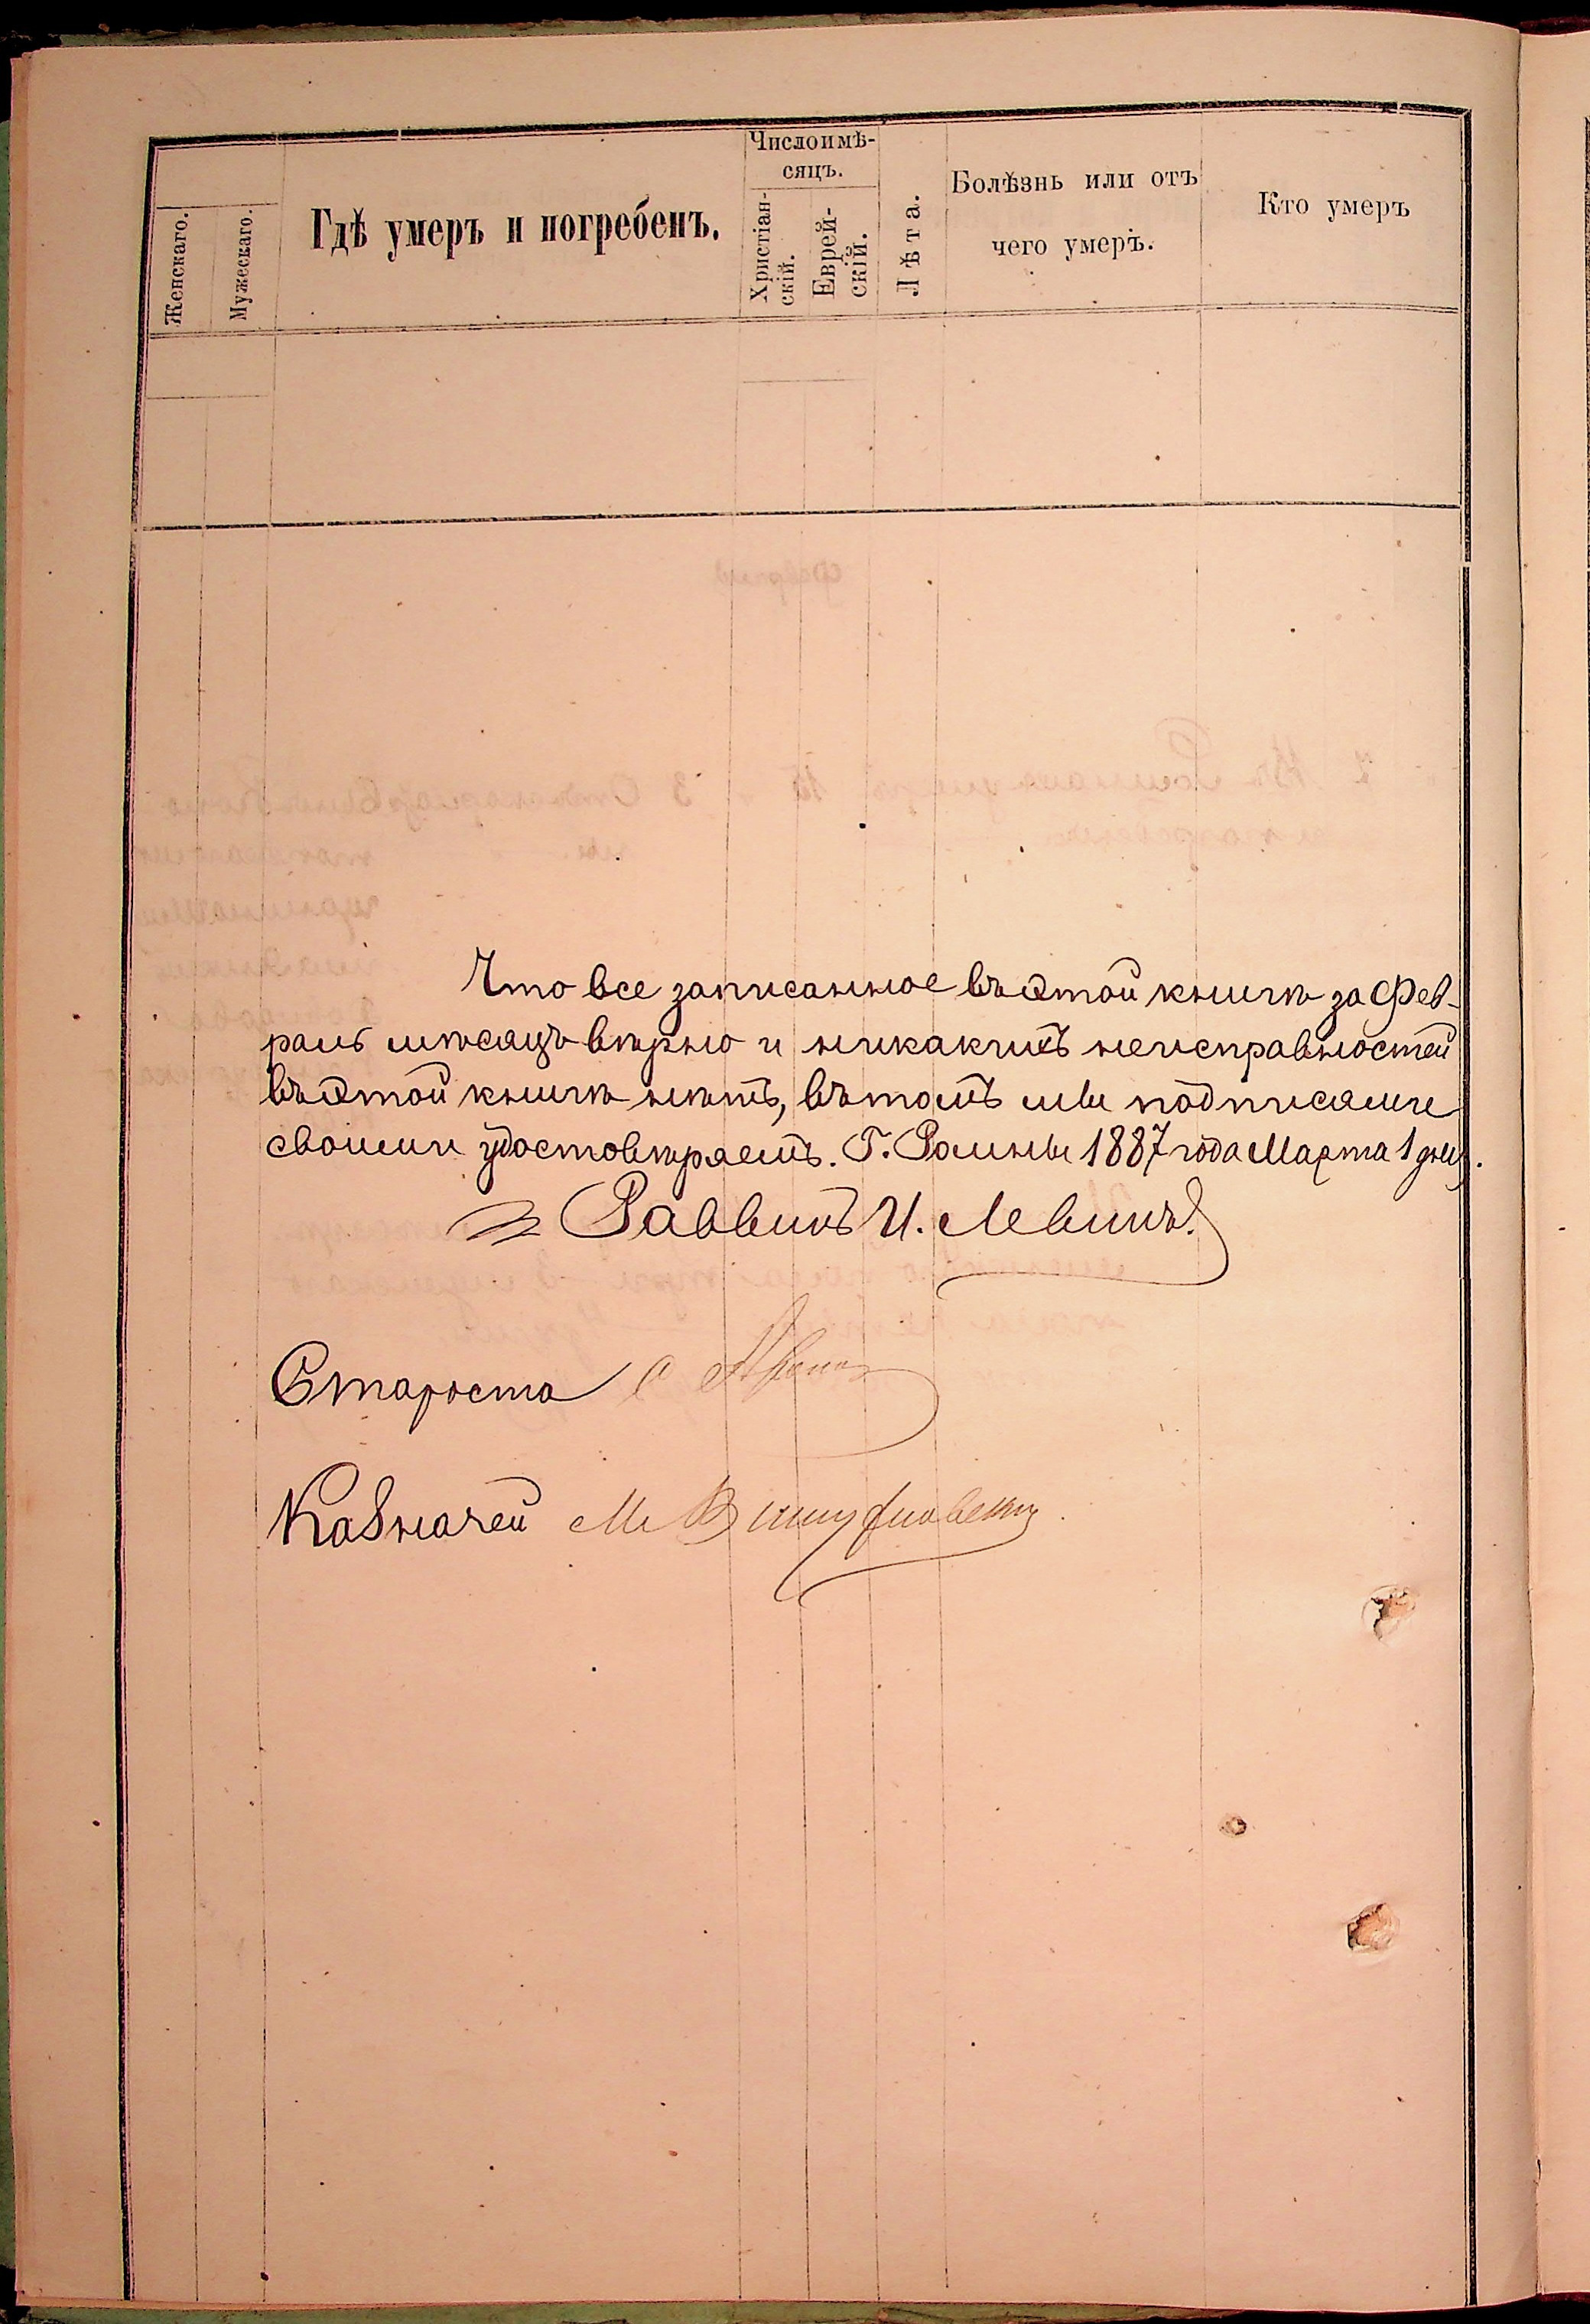 Числоимѣ-
сяцъ.
Женскаго.
Мужескаго.
Гдѣ умеръ и погребенъ.
Христіан-
скій.
Еврей-
скій.
Лѣта.
Болѣзнь или отъ
чего умеръ.
Кто умеръ
Что все записанное въ этой книгѣ за Фев-
раль мѣсяцъ вѣрно и никакихъ неисправностей
въ этой книгѣ нѣтъ, въ томъ мы подписями
своими удостовѣряемъ. Г. Ромны 1887 года Марта 1 дня.
Раввинъ И. Левинъ.
Староста
Казначей М